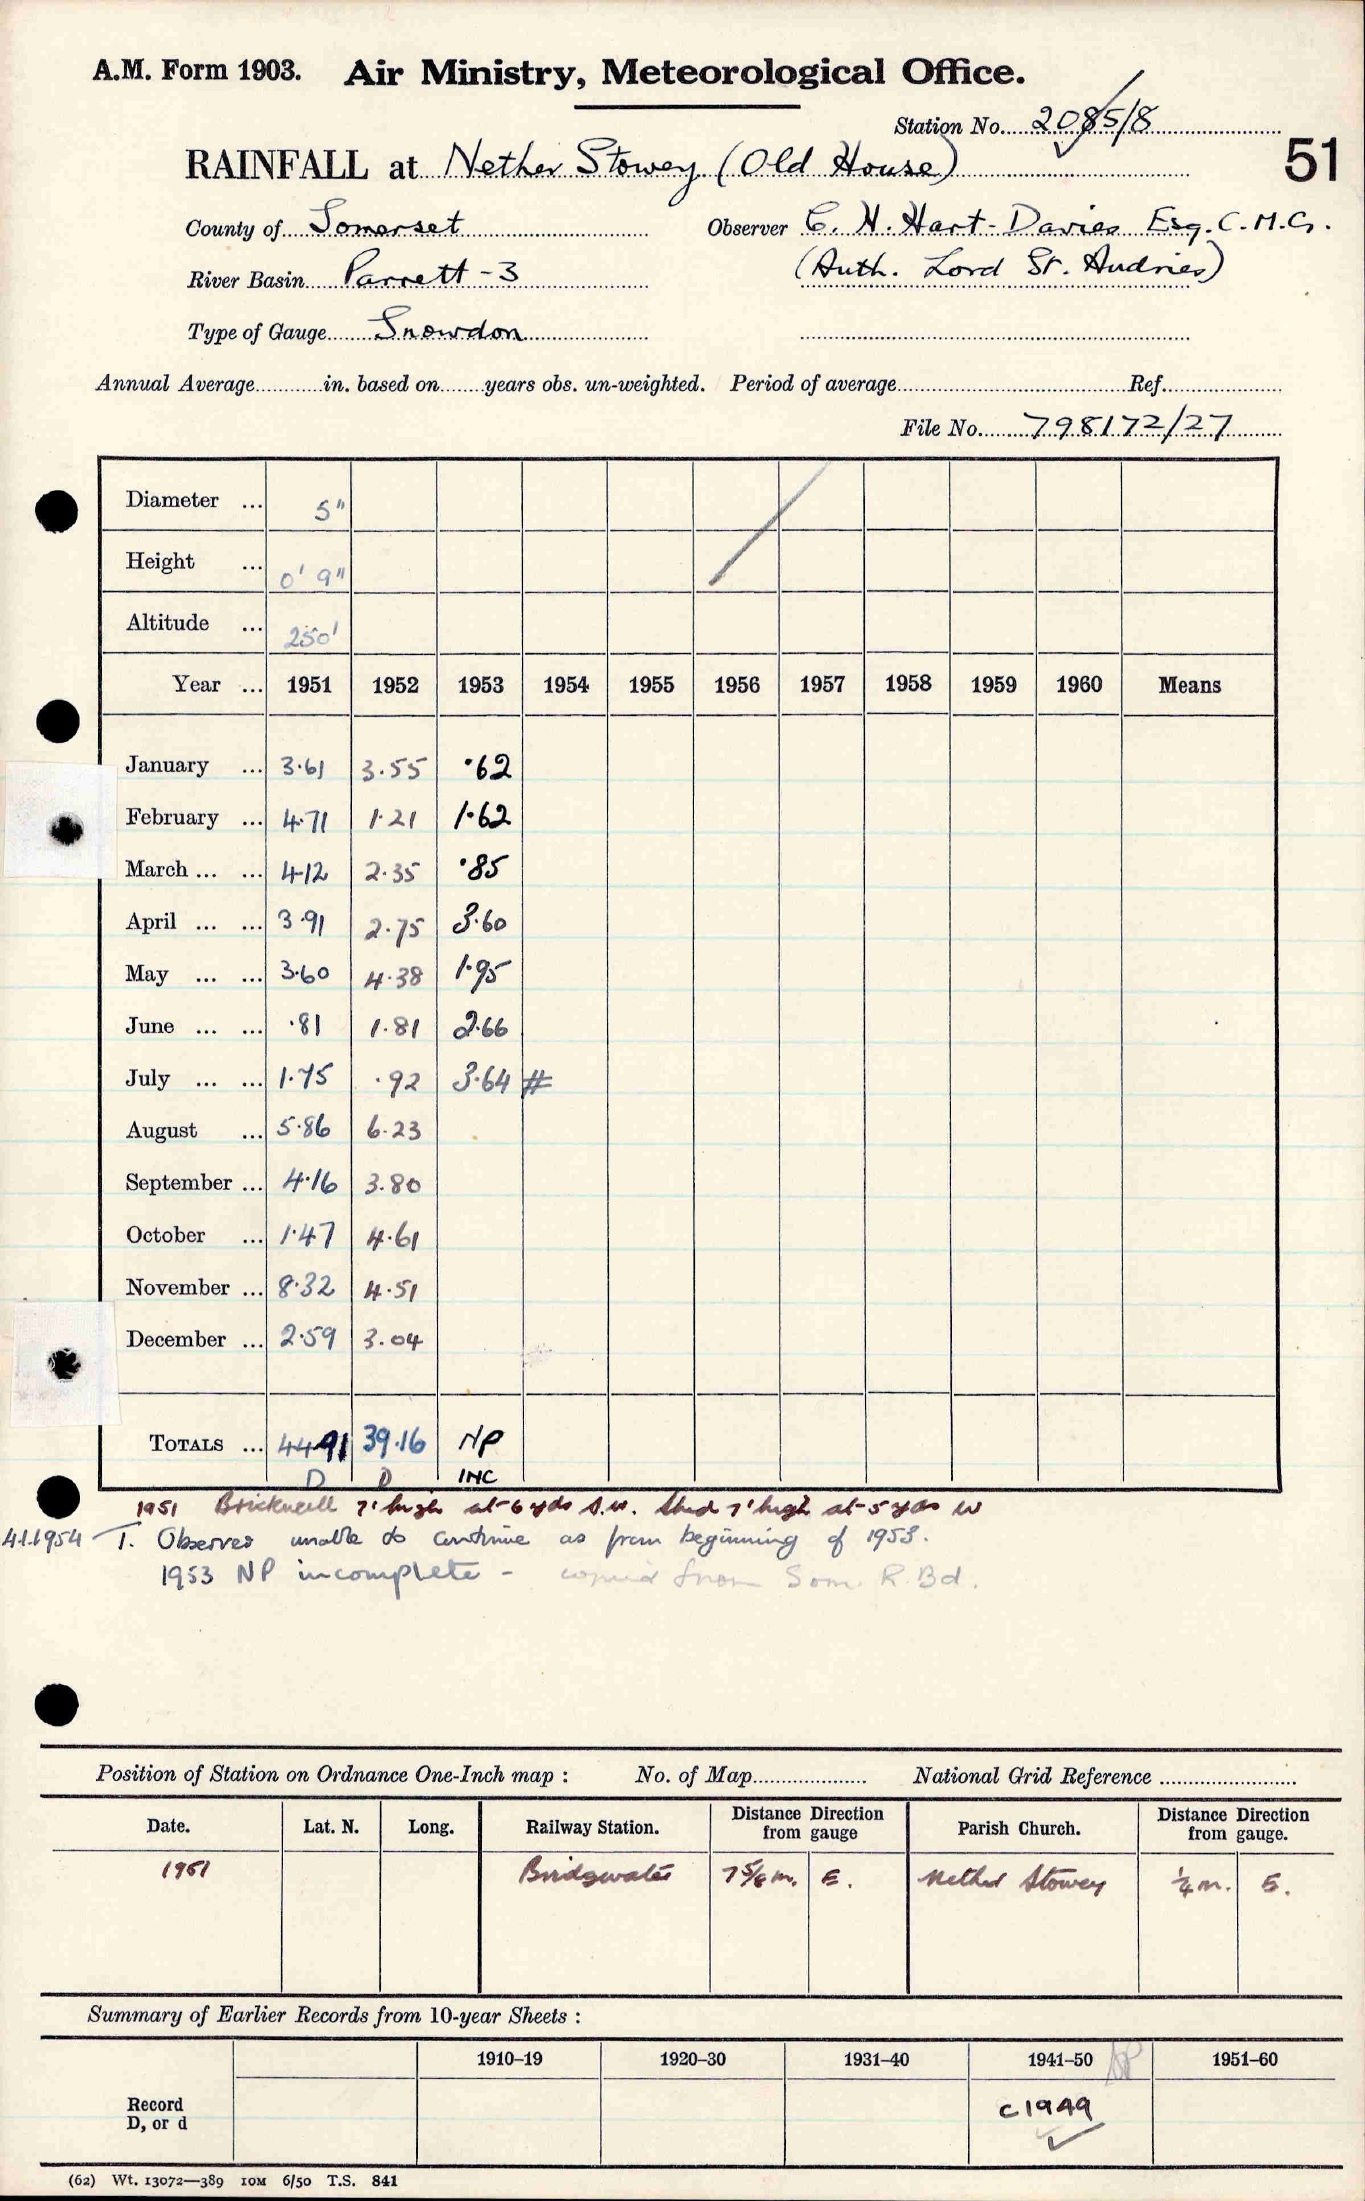 A.M. Form 1903. Air Ministry, Meteorological Office.
Station No. 2085/8
RAINFALL at Nether Stowey (Old House)
51
County of Somerset Observer C. H. Hart-Davies Esq. C.M.G.
River Basin Parrett-3 (Auth. Lord St. Audries)
Type of Gauge Snowdon
Annual Average in. based on years obs. un-weighted. Period of average Ref.
File No. 798172/27
Diameter ... 5"
Height ... 0' 9"
Altitude ... 250'
Year ... 1951 1952 1953 1954 1955 1956 1957 1958 1959 1960 Means
January ... 3.61 3.55 .62
February ... 4.71 1.21 1.62
March ... ... 4.12 2.35 .85
April ... ... 3.91 2.75 3.60
May ... ... 3.60 4.38 1.95
June ... ... .81 1.81 2.66
July ... ... 1.75 .92 3.64 #
August ... 5.86 6.23
September ... 4.16 3.80
October ... 1.47 4.61
November ... 8.32 4.51
December ... 2.59 3.04
TOTALS ... 44.91 39.16 NP
D D INC
1951 Brickwall 7' high at 6 yds S.W. Shed 7' high at 5 yds W
4.1.1954 T. Observer unable to continue as from beginning of 1953.
1953 NP incomplete - copied from Som. R. Bd.
Position of Station on Ordnance One-Inch map : No. of Map National Grid Reference
Date. Lat. N. Long. Railway Station. Distance Direction from gauge Parish Church. Distance Direction from gauge.
1951 Bridgwater 7 5/8 m. E. Nether Stowey 1/4 m. E.
Summary of Earlier Records from 10-year Sheets :
1910–19 1920–30 1931–40 1941–50 NP 1951–60
Record
D, or d
c1949
(62) Wt. 13072—389 10M 6/50 T.S. 841